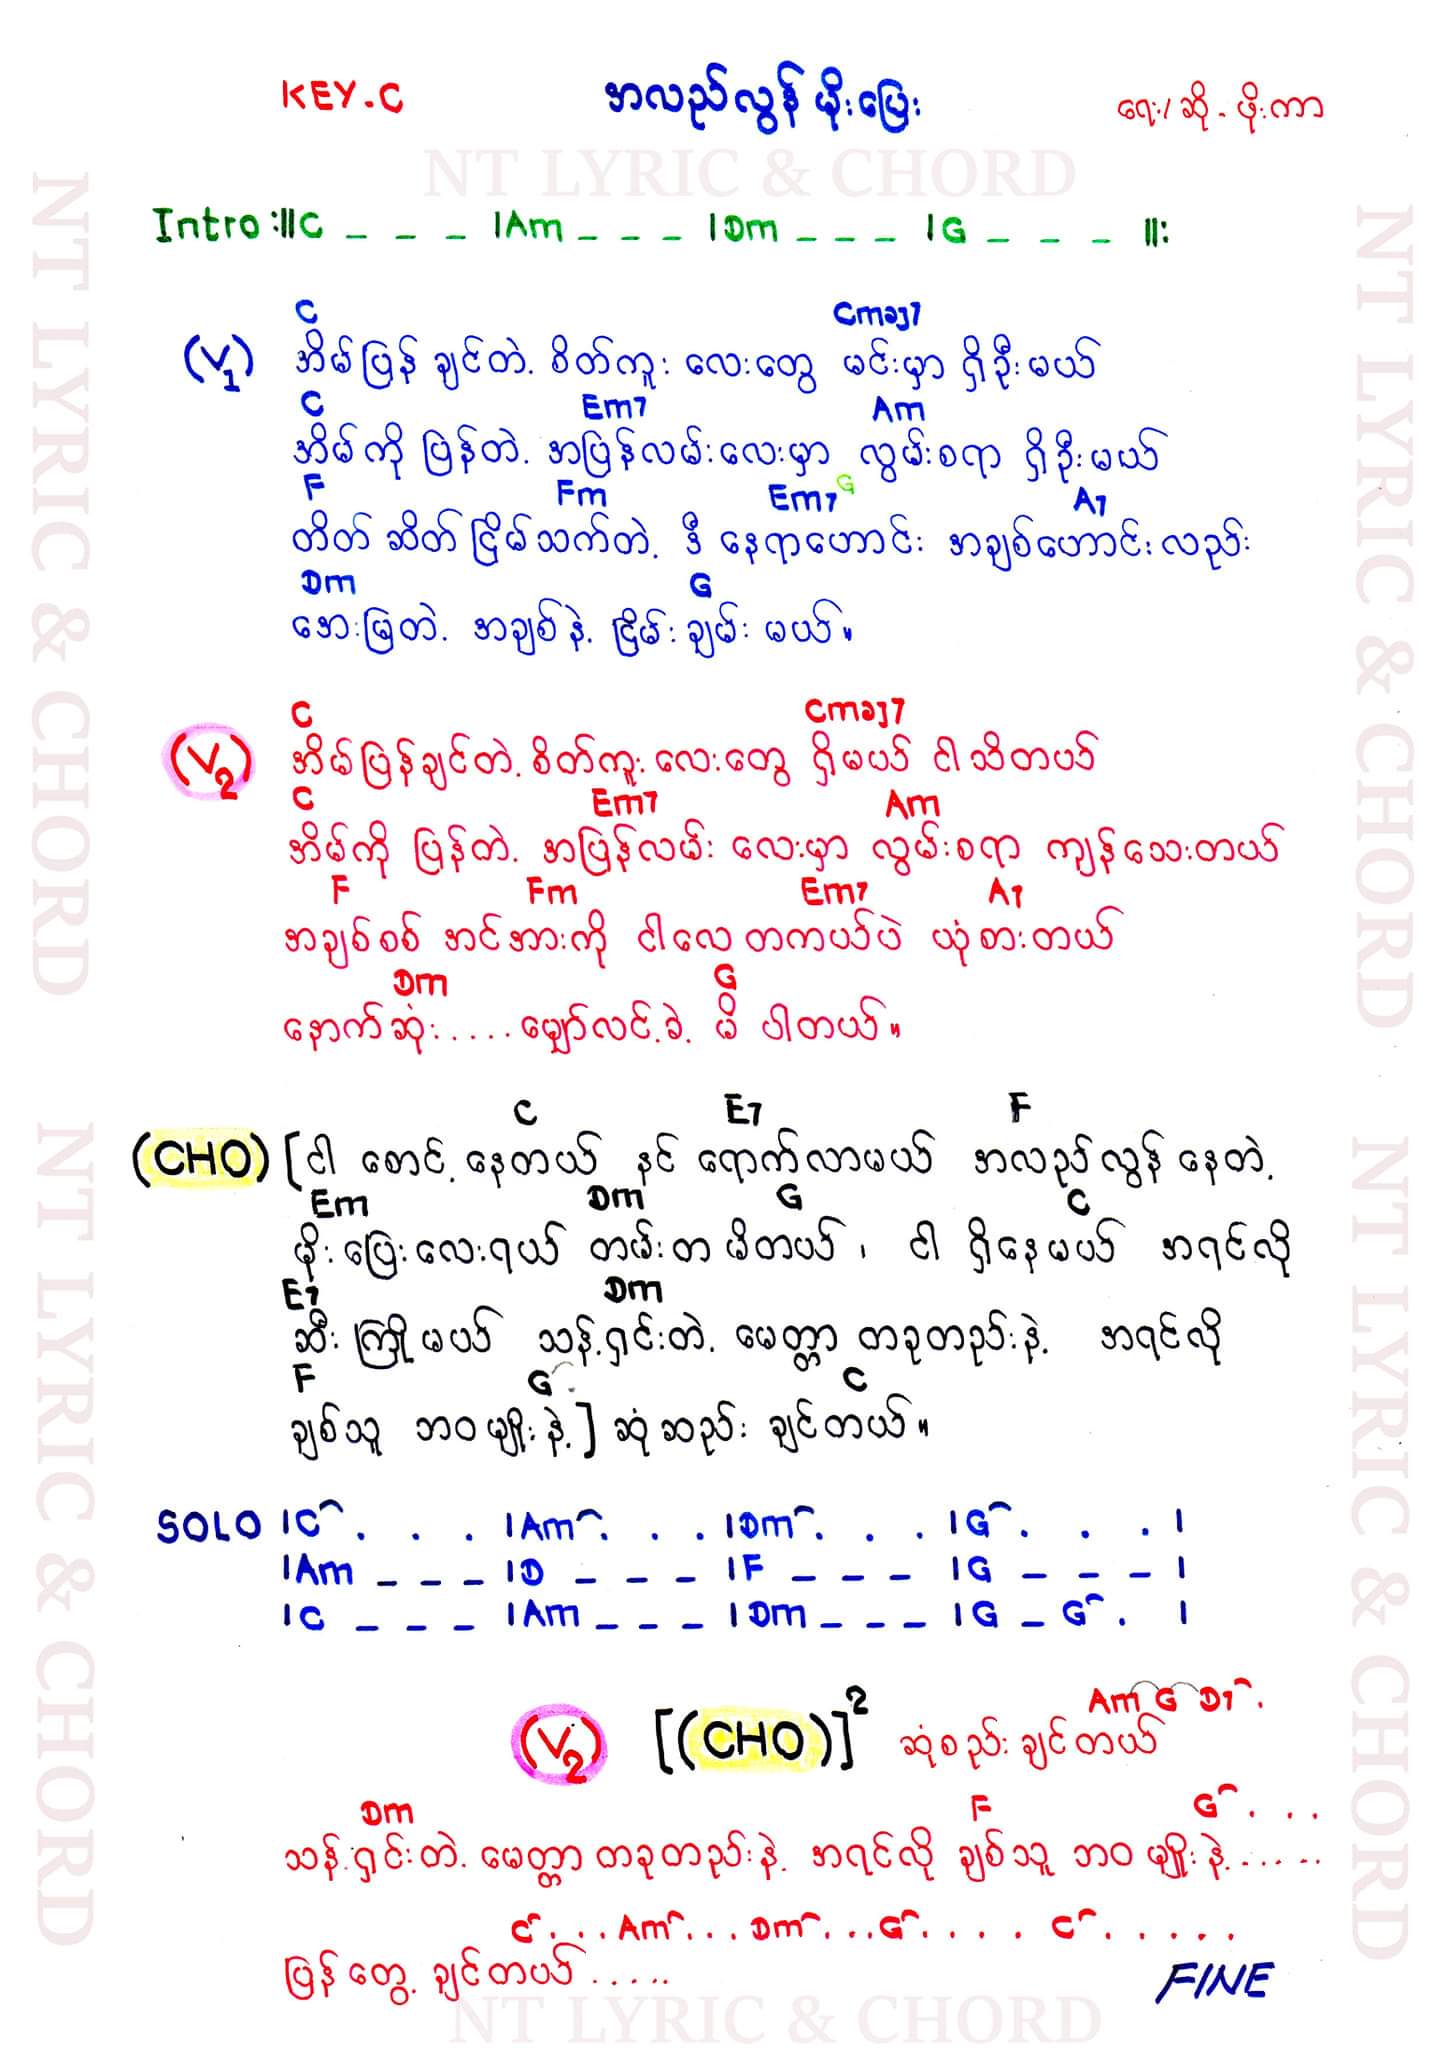 KEY.C အလည်လွန် မိုးပြေး ရေး/ဆို - ဖိုးကာ
NT LYRIC & CHORD
Intro :||C _ _ _ |Am _ _ _ |Dm _ _ _ |G _ _ _ ||:
C Cmaj7
(V1) အိမ်ပြန် ချင်တဲ့ စိတ်ကူး လေးတွေ မင်းမှာ ရှိဦးမယ်
C Em7 Am
အိမ်ကို ပြန်တဲ့ အပြန်လမ်းလေးမှာ လွမ်းစရာ ရှိဦးမယ်
F Fm Em7 G A7
တိတ် ဆိတ် ငြိမ်သက်တဲ့ ဒီ နေရာဟောင်း အချစ်ဟောင်းလည်း
Dm G
အေးမြတဲ့ အချစ်နဲ့ ငြိမ်းချမ်း မယ်။
C Cmaj7
(V2) အိမ်ပြန်ချင်တဲ့ စိတ်ကူးလေးတွေ ရှိမယ် ငါသိတယ်
C Em7 Am
အိမ်ကို ပြန်တဲ့ အပြန်လမ်း လေးမှာ လွမ်းစရာ ကျန်သေးတယ်
F Fm Em7 A7
အချစ်စစ် အင်အားကို ငါလေ တကယ်ပဲ ယုံစားတယ်
Dm G
နောက်ဆုံး....မျှော်လင့်ခဲ့ မိ ပါတယ်။
C E7 F
(CHO) [ငါ စောင့်နေတယ် နင် ရောက်လာမယ် အလည်လွန်နေတဲ့
Em Dm G C
မိုးပြေးလေးရယ် တမ်းတ မိတယ်၊ ငါ ရှိနေမယ် အရင်လို
E7 Dm
ဆီးကြိုမယ် သန့်ရှင်းတဲ့ မေတ္တာ တခုတည်းနဲ့ အရင်လို
F G C
ချစ်သူ ဘဝမျိုးနဲ့] ဆုံဆည်း ချင်တယ်။
SOLO |C . . . |Am . . . |Dm . . . |G . . . |
|Am _ _ _ |D _ _ _ |F _ _ _ |G _ _ _ |
|C _ _ _ |Am _ _ _ |Dm _ _ _ |G _ G . |
Am G D7 .
(V2) [(CHO)]2 ဆုံစည်းချင်တယ်
Dm F G . . .
သန့်ရှင်းတဲ့ မေတ္တာ တခုတည်းနဲ့ အရင်လို ချစ်သူ ဘဝမျိုးနဲ့......
C ...Am ...Dm ...G .... C .....
ပြန်တွေ့ ချင်တယ်.....
FINE
NT LYRIC & CHORD
NT LYRIC & CHORD
NT LYRIC & CHORD
NT LYRIC & CHORD
NT LYRIC & CHORD